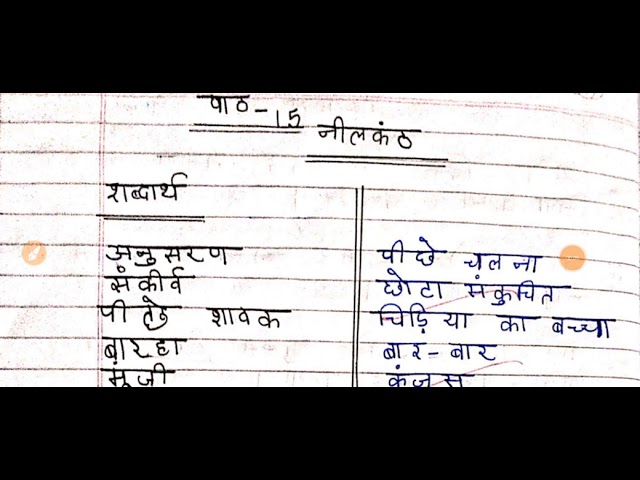 पाठ-15
नीलकंठ
शब्दार्थ
अनुसरण पीछे चलना
संकीर्व छोटा संकुचित
शावक चिड़िया का बच्चा
बारहा बार-बार
मूजी कंजूस